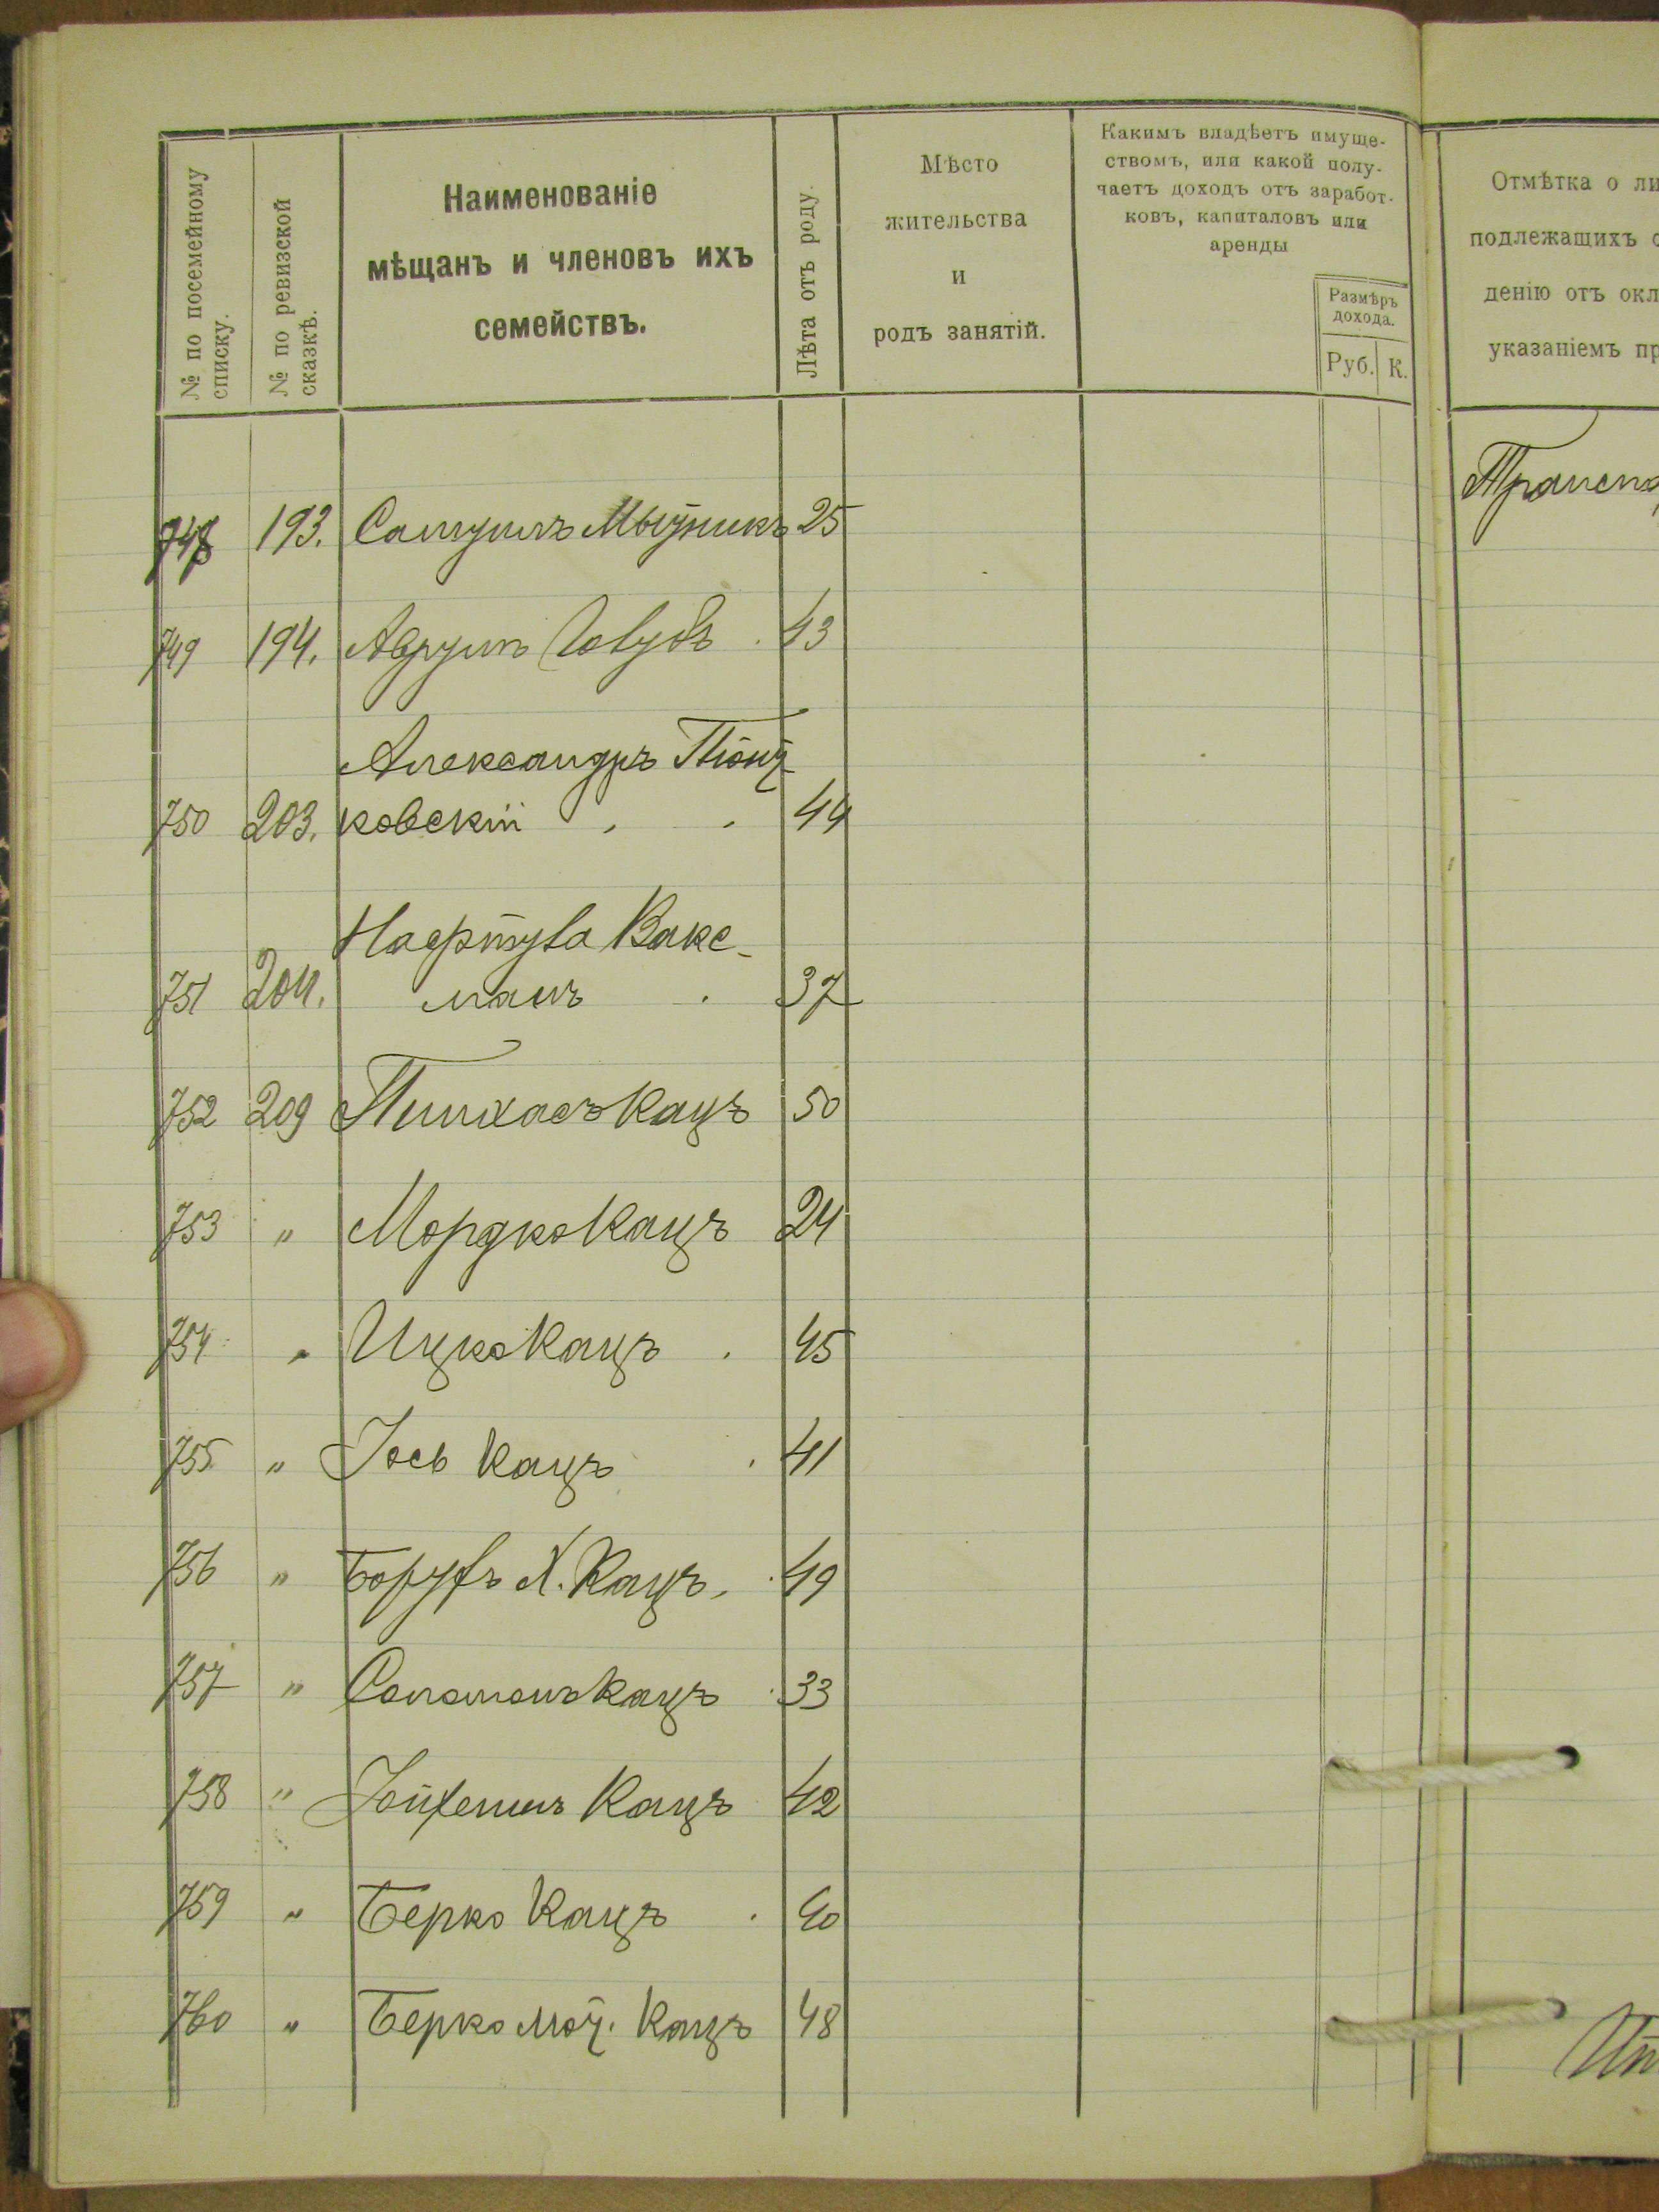 № по посемейному
списку.
№ по ревизской
сказкѣ.
Наименованіе
мѣщанъ и членовъ ихъ
семействъ.
Лѣта отъ роду.
Мѣсто
жительства
и
родъ занятій.
Какимъ владѣетъ имуще-
ствомъ, или какой полу-
чаетъ доходъ отъ заработ-
ковъ, капиталовъ или
аренды
Размѣръ
дохода.
Руб. К.
Отмѣтка о ли
подлежащихъ о
денію отъ окл
указаніемъ пр
Транспо
748 193. Самуилъ 25
749 194. АврумъГолубъ . 43
Александръ
750 203. ковскій 44
Нафтула Вакс-
751 204. манъ . 37
752 209 Пинхасъ Кацъ 50
753 " Мордко Кацъ 24
754 " Ицко Кацъ . 45
755 " Іось Кацъ . 41
756 " Борухъ Х. Кацъ. 49
757 " Соломонъ Кацъ . 33
758 " Кацъ 42
759 " Берко Кацъ . 40
760 " Берко Кацъ 48
Ит